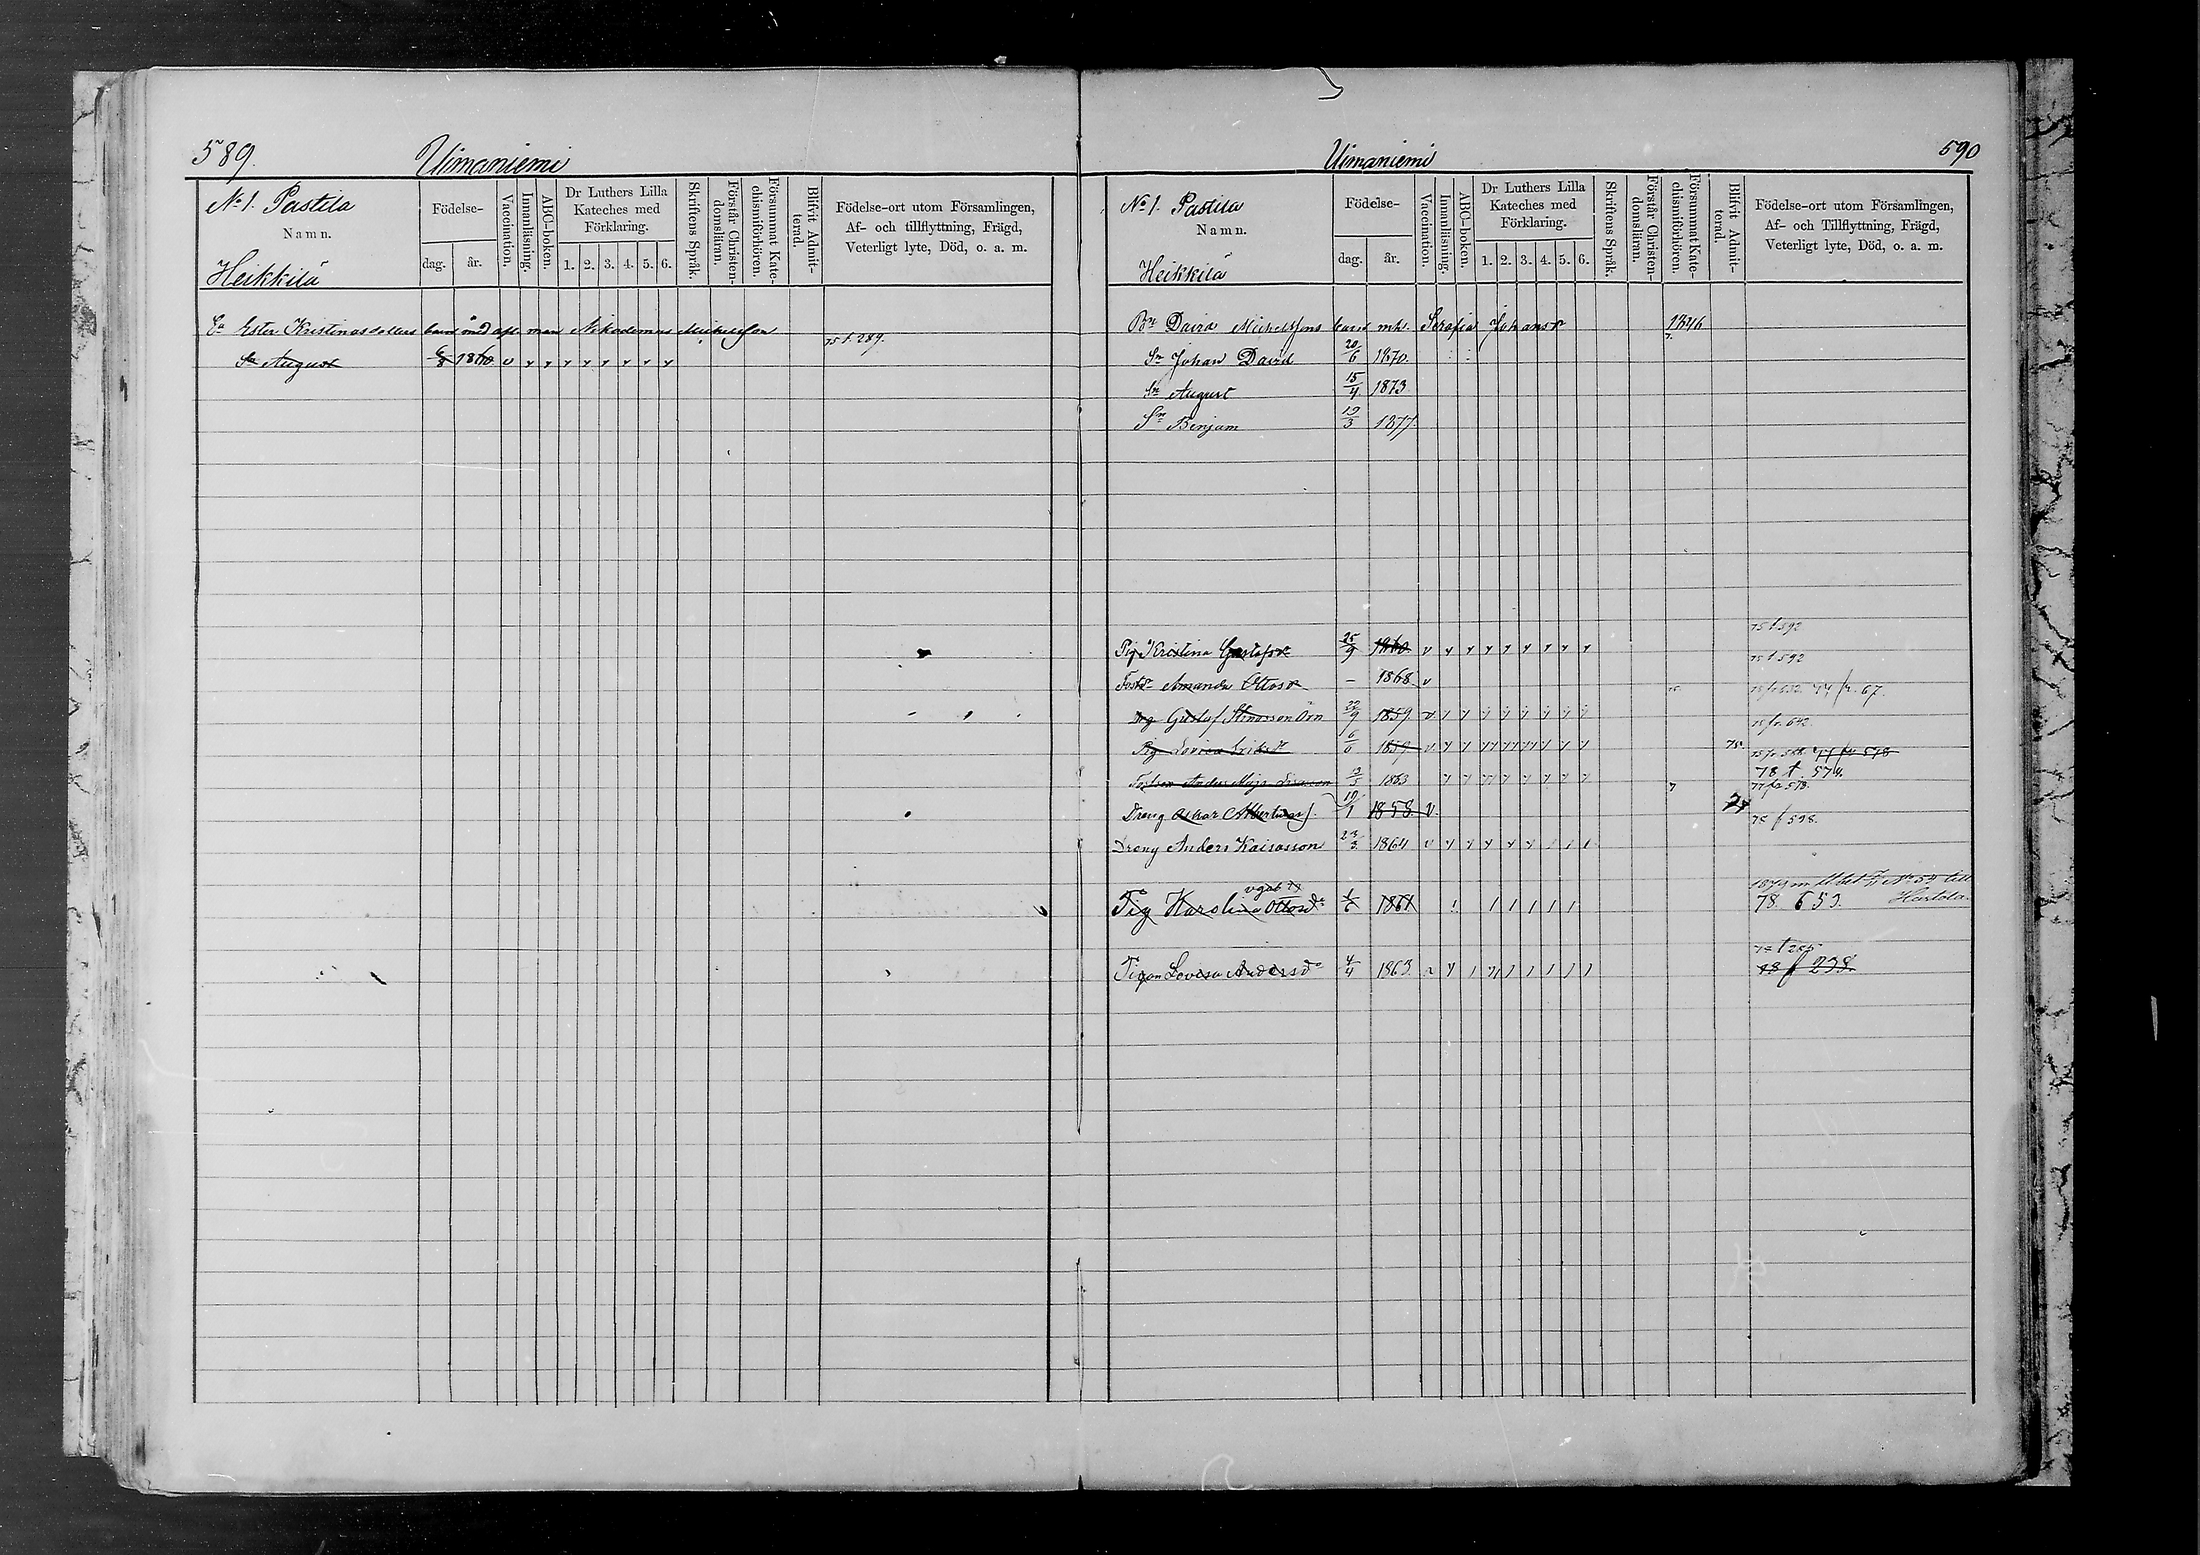 589.
Uimaniemi
No 1. Pastila
Namn.
Heikkilä
Födelse-
dag.
år.
Vaccination.
Innanläsning.
ABC-boken.
Dr Luthers Lilla
Kateches med
Förklaring.
1. 2. 3. 4. 5. 6.
Skriftens Språk.
Förstår Christen-
domsläran.
Försummat Kate-
chismiförhören.
Blifvit Admit-
terad.
Födelse-ort utom Församlingen,
Af- och tillflyttning, Frägd,
Veterligt lyte, Död, o. a. m.
Ea Ester Kristinasdotters barn med afl. man Nikodemus Michelsson
75 t. 289.
Sn August 1860 v
Uimaniemi
590
No 1. Pastila
Namn.
Heikkilä
Födelse-
dag.
år.
Vaccination.
Innanläsning.
ABC-boken.
Dr Luthers Lilla
Kateches med
Förklaring.
1. 2. 3. 4. 5. 6.
Skriftens Språk.
Förstår Christen-
domsläran.
Försummat Kate-
chismiförhören.
Blifvit Admit-
terad.
Födelse-ort utom Församlingen,
Af- och Tillflyttning, Frägd,
Veterligt lyte, Död, o. a. m.
Bn David Michelssons barn mh. Serafia Johansdr 1846
Sn Johan David 20/6 1870.
Sn August 15/4 1873
Sn Benjam 19/3 1877.
75 t 592
Pig Kristina Gustafsdr 25/9 1860 v
75 t 592
Amanda Ottosdr – 1868 v
77 fr. 67.
Drg Gustaf Stenasson Örn 22/9 1859 v
75 fr. 642
Pig Lovisa Eriksdr 6/6 1859 v
75.
77 fr 578
78 t. 574.
1863
77 fr 578.
Dreng Oskar Albertsson 19/1 1858 v
75 f 598.
Dreng Anders Kaisasson 23/3 1864 v
vgab 77
Hartola
Pig Karolina Ottosdr 1/6 1861
78. 653.
Pigan Lovisa Andersdr 4/4 1863
78 f 238.